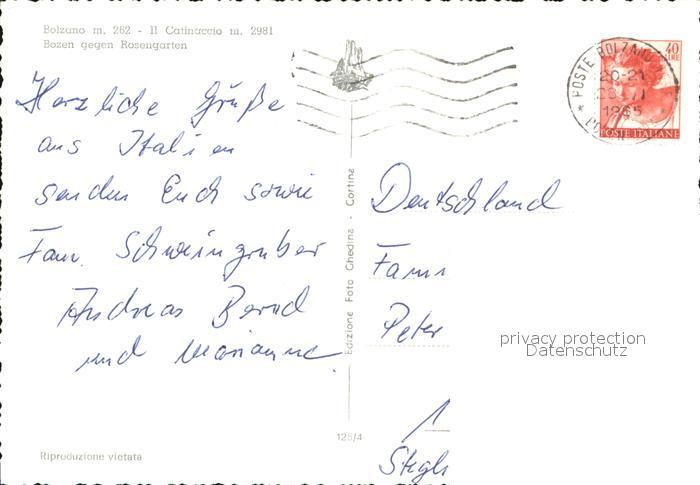 Bolzano m. 262 - Il Catinaccio m. 2981
Bozen gegen Rosengarten
Herzliche Grüße
aus Italien
senden Euch sowie
Fam. Schweingruber
Andreas Bernd
und Marianne.
Edizione Foto Ghedina - Cortina
125/4
Riproduzione vietata
POSTE BOLZANO
20-21
1965
40
LIRE
POSTE ITALIANE
Deutschland
Fami
Peter
1
Stegl
privacy protection
Datenschutz